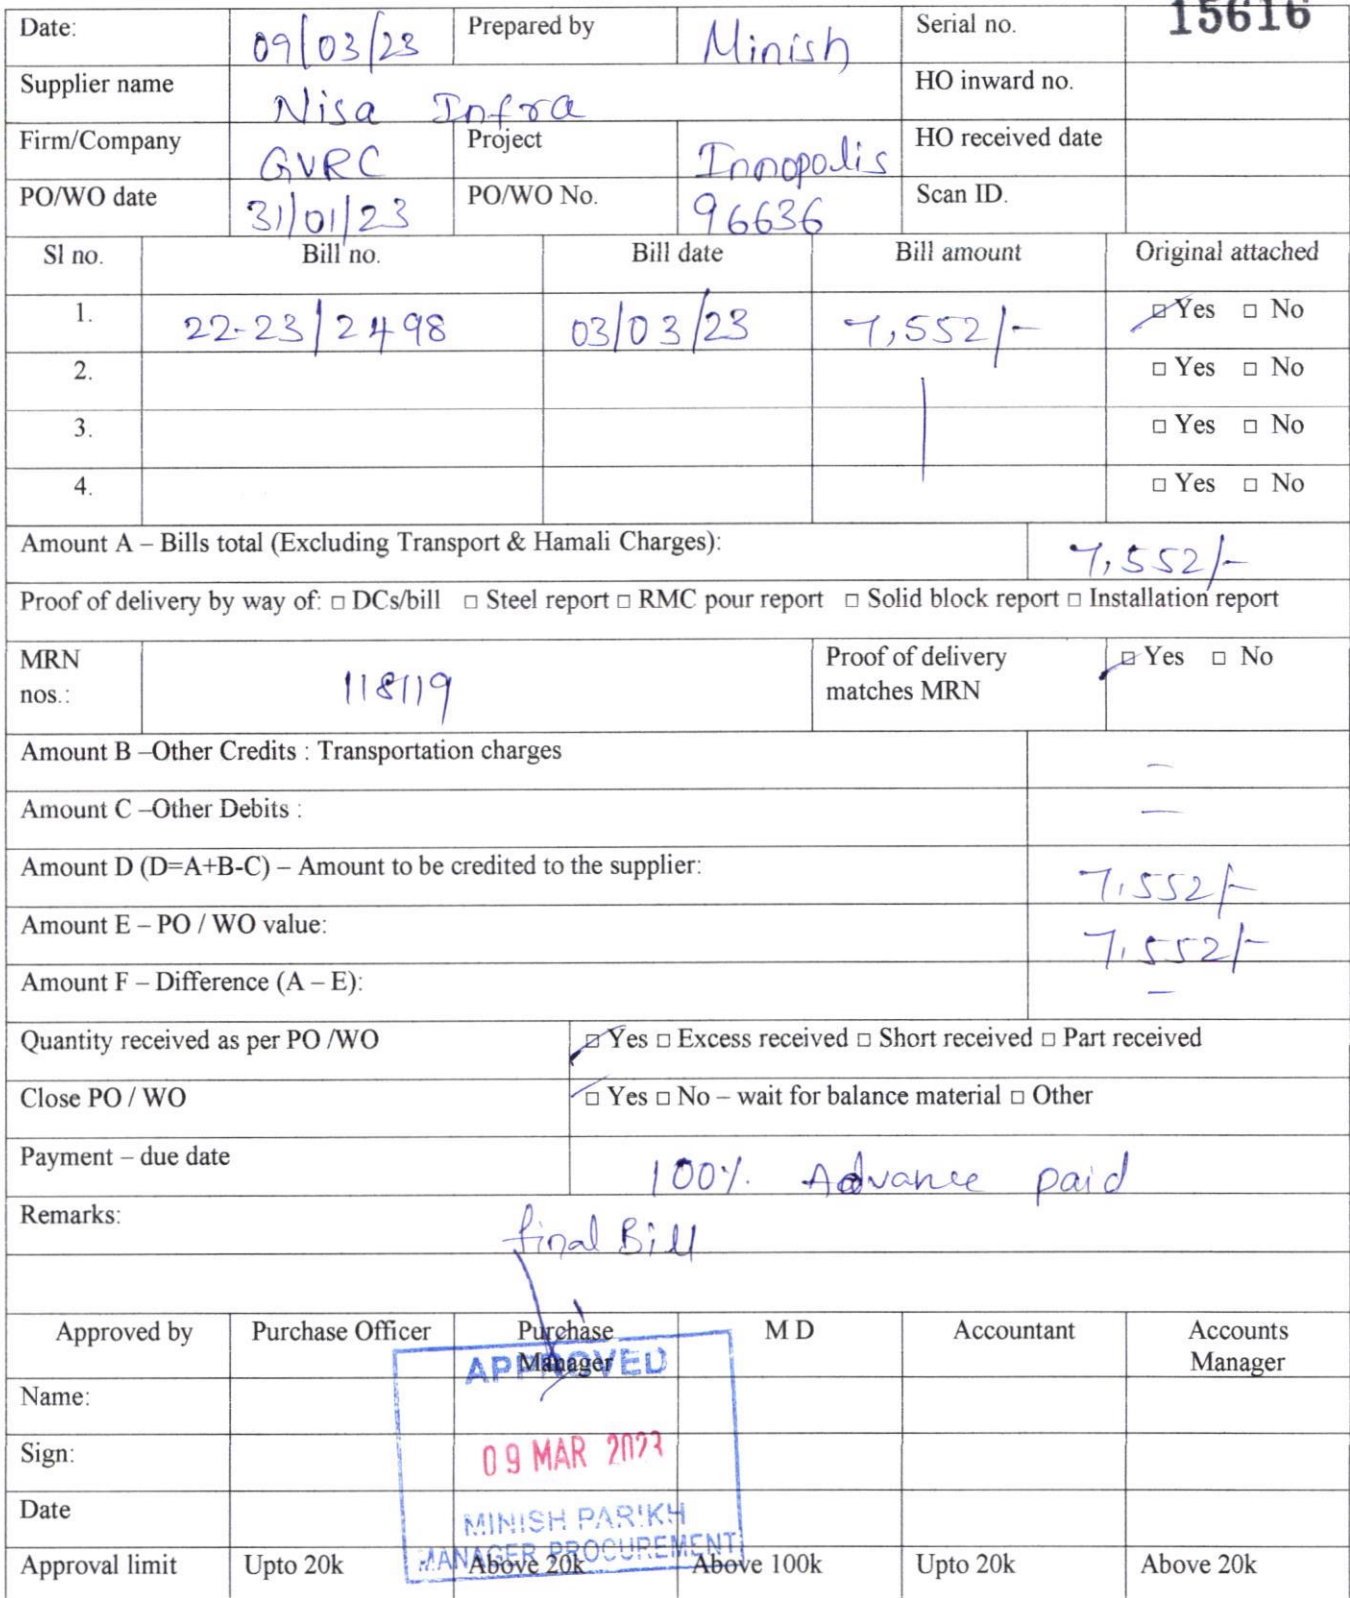 Date: 09/03/23 Prepared by Minish Serial no. 15616
Supplier name Nisa Infra HO inward no.
Firm/Company GVRC Project Innopolis HO received date
PO/WO date 31/01/23 PO/WO No. 96636 Scan ID.
Sl no. Bill no. Bill date Bill amount Original attached
1. 22-23/2498 03/03/23 7,552/- ☑ Yes □ No
2. □ Yes □ No
3. □ Yes □ No
4. □ Yes □ No
Amount A – Bills total (Excluding Transport & Hamali Charges): 7,552/-
Proof of delivery by way of: □ DCs/bill □ Steel report □ RMC pour report □ Solid block report □ Installation report
MRN nos.: 118119 Proof of delivery matches MRN ☑ Yes □ No
Amount B –Other Credits : Transportation charges –
Amount C –Other Debits : –
Amount D (D=A+B-C) – Amount to be credited to the supplier: 7,552/-
Amount E – PO / WO value: 7,552/-
Amount F – Difference (A – E): –
Quantity received as per PO /WO ☑ Yes □ Excess received □ Short received □ Part received
Close PO / WO ☑ Yes □ No – wait for balance material □ Other
Payment – due date 100% Advance paid
Remarks: final Bill
Approved by Purchase Officer Purchase Manager M D Accountant Accounts Manager
APPROVED
Name:
Sign: 09 MAR 2023
Date
MINISH PARIKH
MANAGER PROCUREMENT
Approval limit Upto 20k Above 20k Above 100k Upto 20k Above 20k